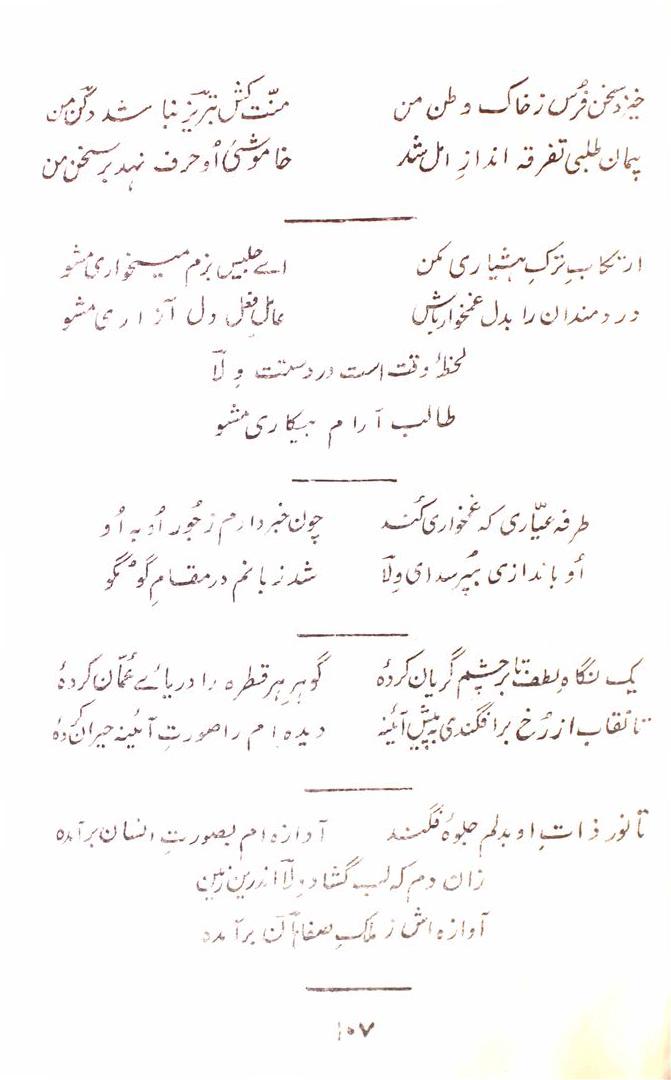 خیزد سخن فرس ز خاک وطن من منّت کش تبریز نبا شد دکن من
پیمان طلبی تفرقہ اندازِ امل شد خاموشئ اُو حرف نہد بر سخن من
ارتکابِ ترکِ ہشیاری مکن اے جلیس بزم میخواری مشو
دردمندان را بدل غمخوار باش عاملِ فعلِ دل آزاری مشو
لحظۂ وقت است در دستت وِلاؔ
طالب آرام بیکاری مشو
طرفہ عیّاری کہ غمخواری کُند چون خبر دارم ز جُور اُو بہ اُو
اُو باندازی بپُرسد ای وِلاؔ شد زبانم در مقامِ گومگو
یک نگاہِ لطف تا بر چشم گریان کردۂ گوہرِ ہر قطرہ را دریائے عُمّان کردۂ
تا نقاب از رُخ برافگندی بہ پیشِ آئینہ دیدہ ام را صورتِ آئینہ حیران کردۂ
تا نور ذاتِ او بدلم جلوۂ فگند آوازہ ام بصورتِ انسان برآمدہ
زان دم کہ لب گشاد وِلاؔ اندرین زمین
آوازہ اش ز ملکِ صفاہان برآمدہ
۱۰۷